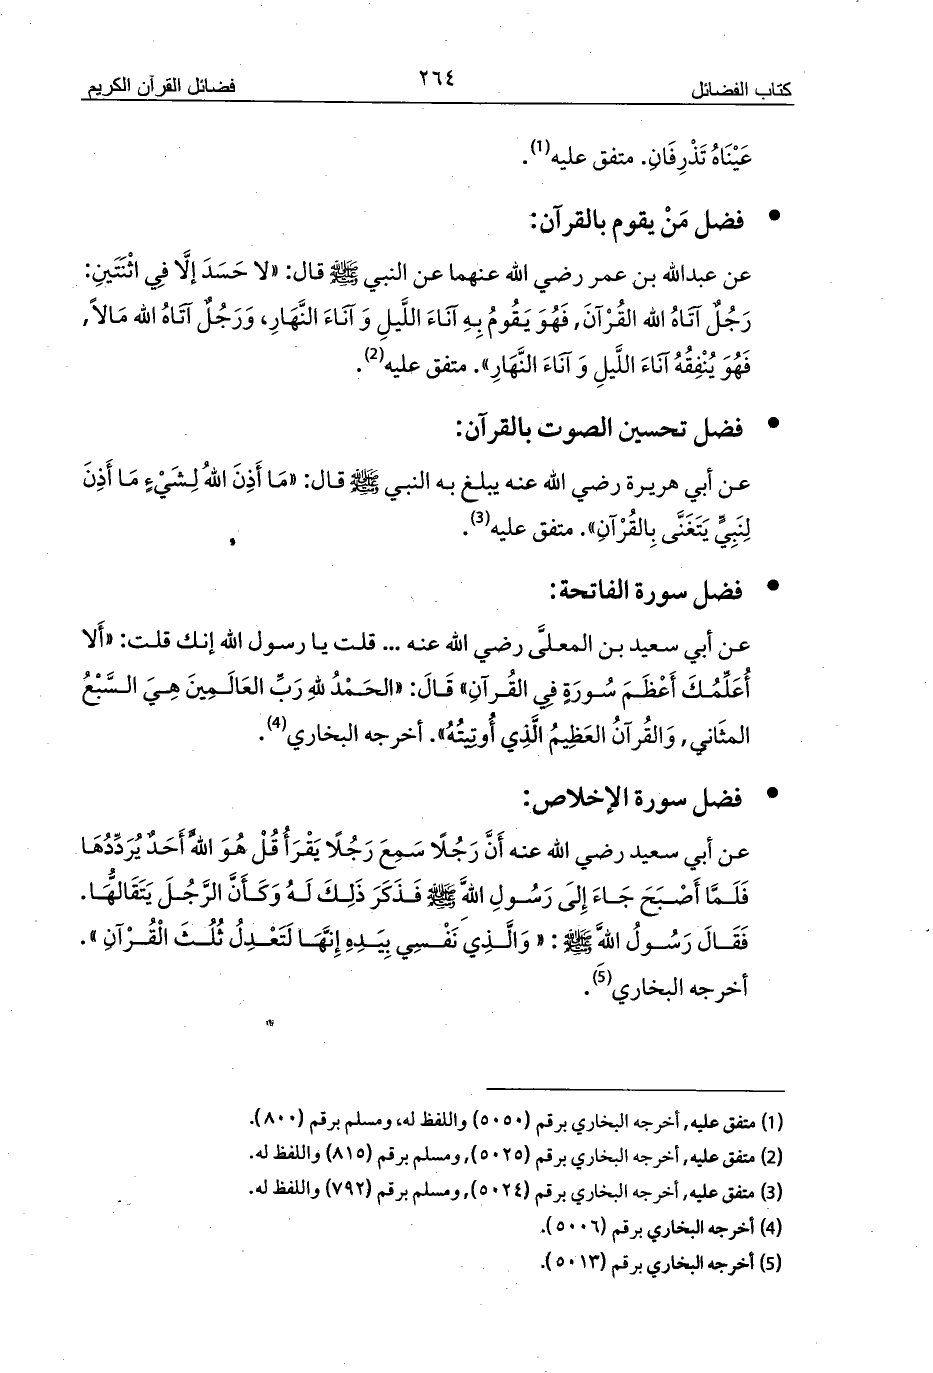 كتاب الفضائل ٢٦٤ فضائل القرآن الكريم
عَيْنَاهُ تَذْرِفَانِ. متفق عليه(1).
• فضل مَنْ يقوم بالقرآن:
عن عبدالله بن عمر رضي الله عنهما عن النبي ﷺ قال: «لا حَسَدَ إلَّا فِي اثْنَتَينِ:
رَجُلٌ آتَاهُ الله القُرْآنَ, فَهُوَ يَقُومُ بِهِ آنَاءَ اللَّيلِ وَ آنَاءَ النَّهَارِ، وَرَجُلٌ آتَاهُ الله مَالاً,
فَهُوَ يُنْفِقُهُ آنَاءَ اللَّيلِ وَ آنَاءَ النَّهَارِ». متفق عليه(2).
• فضل تحسين الصوت بالقرآن:
عن أبي هريرة رضي الله عنه يبلغ به النبي ﷺ قال: «مَا أَذِنَ اللهُ لِشَيْءٍ مَا أَذِنَ
لِنَبِيٍّ يَتَغَنَّى بِالقُرْآنِ». متفق عليه(3).
• فضل سورة الفاتحة:
عن أبي سعيد بن المعلَّى رضي الله عنه ... قلت يا رسول الله إنك قلت: «أَلا
أُعَلِّمُكَ أَعْظَمَ سُورَةٍ فِي القُرآنِ» قَالَ: «الحَمْدُ للهِ رَبِّ العَالَمِينَ هِيَ السَّبْعُ
المثَاني, وَالقُرآنُ العَظِيمُ الَّذِي أُوتِيتُهُ». أخرجه البخاري(4).
• فضل سورة الإخلاص:
عن أبي سعيد رضي الله عنه أَنَّ رَجُلًا سَمِعَ رَجُلًا يَقْرَأُ قُلْ هُوَ اللهُ أَحَدٌ يُرَدِّدُهَا
فَلَمَّا أَصْبَحَ جَاءَ إِلَى رَسُولِ اللهِ ﷺ فَذَكَرَ ذَلِكَ لَهُ وَكَأَنَّ الرَّجُلَ يَتَقَالُّهَا.
فَقَالَ رَسُولُ اللهِ ﷺ : « وَالَّذِي نَفْسِي بِيَدِهِ إِنَّهَا لَتَعْدِلُ ثُلُثَ الْقُرْآنِ ».
أخرجه البخاري(5).
(1) متفق عليه, أخرجه البخاري برقم (٥٠٥٠) واللفظ له، ومسلم برقم (٨٠٠).
(2) متفق عليه, أخرجه البخاري برقم (٥٠٢٥), ومسلم برقم (٨١٥) واللفظ له.
(3) متفق عليه, أخرجه البخاري برقم (٥٠٢٤), ومسلم برقم (٧٩٢) واللفظ له.
(4) أخرجه البخاري برقم (٥٠٠٦).
(5) أخرجه البخاري برقم (٥٠١٣).